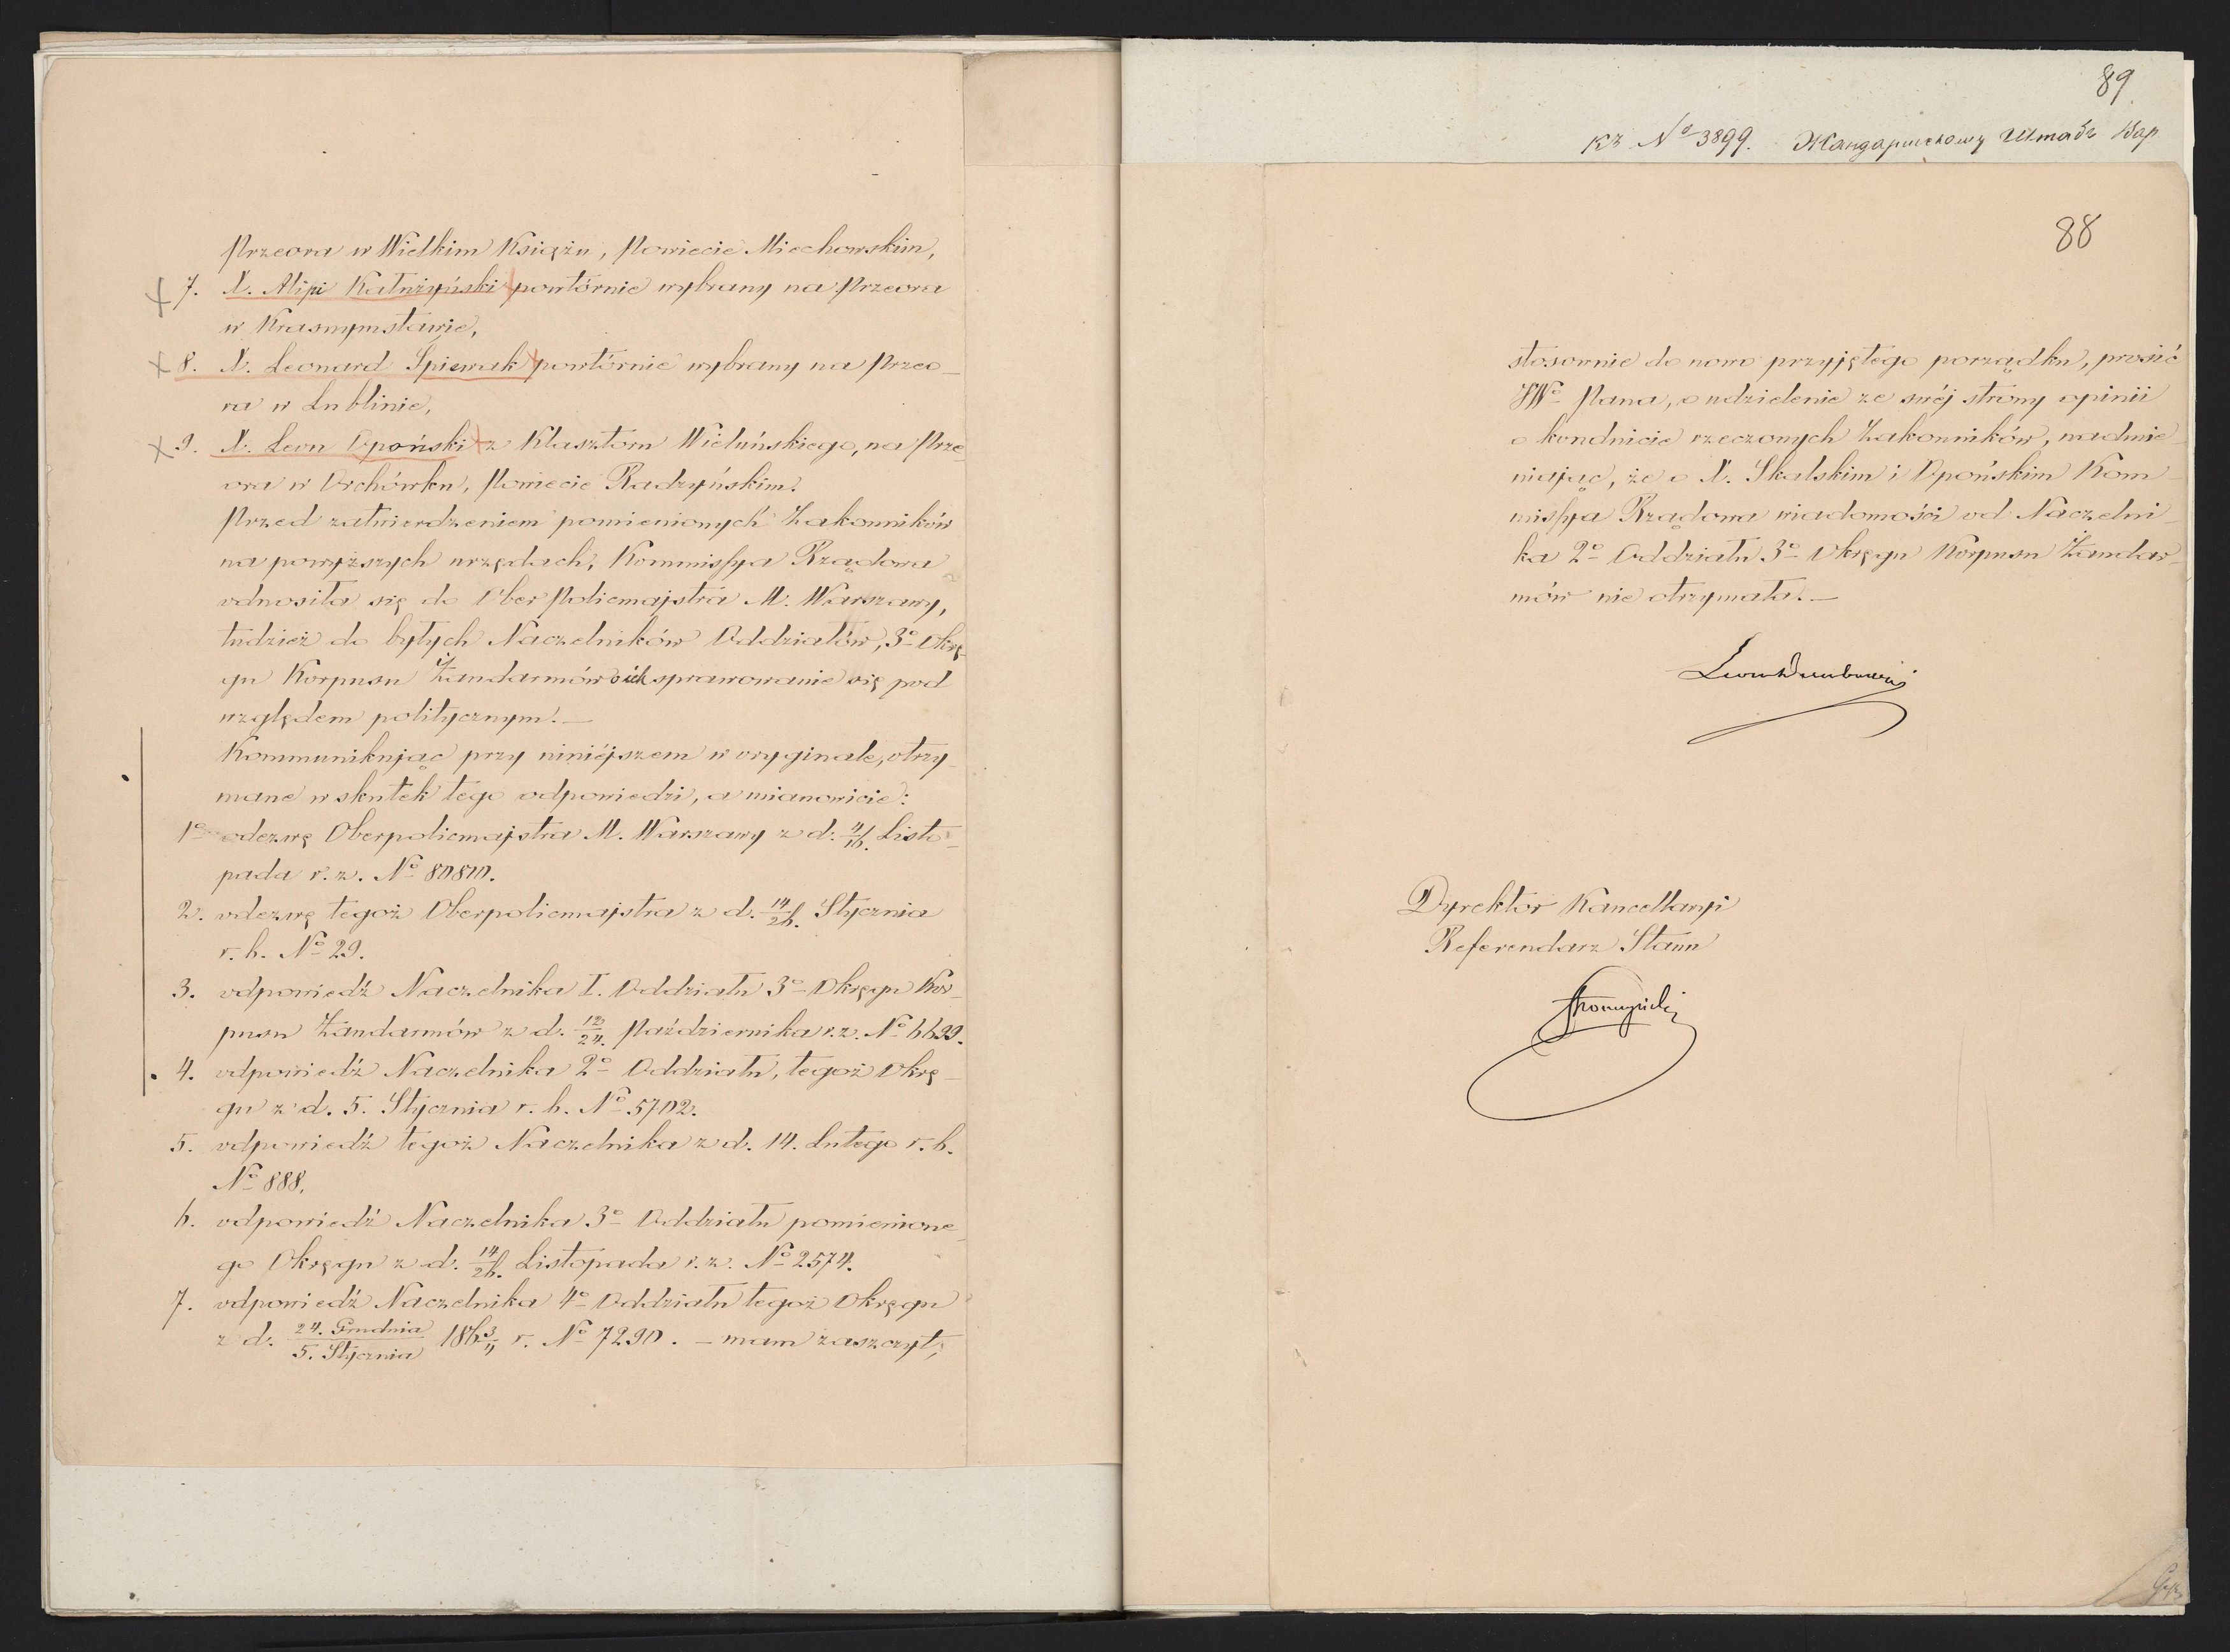 Przeora w Wielkim Książu, Powiecie Miechowskim,
7. X. Alipi Kałużyński powtórnie wybrany na Przeora
w Krasnymstawie,
8. X. Leonard Śpiewak powtórnie wybrany na Przeo-
ra w Lublinie,
9. X. Leon Opoński z Klasztoru Wieluńskiego, na Prze
ora w Orchówku, Powiecie Radzyńskim.
Przed zatwierdzeniem pomienionych Zakonników
na powyższych urzędach, Kommissya Rządowa
odnosiła się do Ober Policmajstra M. Warszawy,
tudzież do byłych Naczelników Oddziałów, 3º Okrę-
gu Korpusu Żandarmów o ich sprawowanie się pod
względem politycznym. —
Kommunikując przy niniejszem w oryginale, otrzy-
mane w skutek tego odpowiedzi, a mianowicie:
1º odezwę Oberpolicmajstra M. Warszawy z d: 4/16. Listo-
pada r. z. Nº 80810.
2. odezwę tegoż Oberpolicmajstra z d. 14/26. Stycznia
r. b. Nº 29.
3. odpowiedź Naczelnika I. Oddziału 3º Okręgu Kor-
pusu Żandarmów z d. 12/24. Października r. z. Nº 6639.
4. odpowiedź Naczelnika 2º Oddziału, tegoż Okrę-
gu z d. 5. Stycznia r. b. Nº 5702.
5. odpowiedź tegoż Naczelnika z d. 14. Lutego r. b.
Nº 888.
6. odpowiedź Naczelnika 3º Oddziału pomienione-
go Okręgu z d. 14/26. Listopada r. z. Nº 2574.
7. odpowiedź Naczelnika 4º Oddziału tegoż Okręgu
z d. 24. Grudnia/5. Stycznia 186 3/4 r. Nº 7290. — mam zaszczyt,
89
Къ № 3899. Жандармскому Штабу Вар
88
stosownie do nowo przyjętego porządku, prosić
JWº Pana, o udzielenie ze swéj strony opinii
o konduicie rzeczonych Zakonników, nadmie-
niając, że o X. Skalskim i Opońskim Kom-
missya Rządowa wiadomości od Naczelni-
ka 2º Oddziału 3º Okręgu Korpusu Żandar-
mów nie otrzymała. —
Dyrektor Kancellaryi
Referendarz Stanu